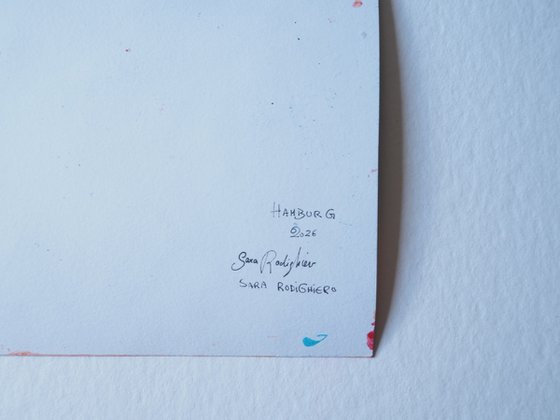 HAMBURG
2026
Sara Rodighiero
SARA RODIGHIERO